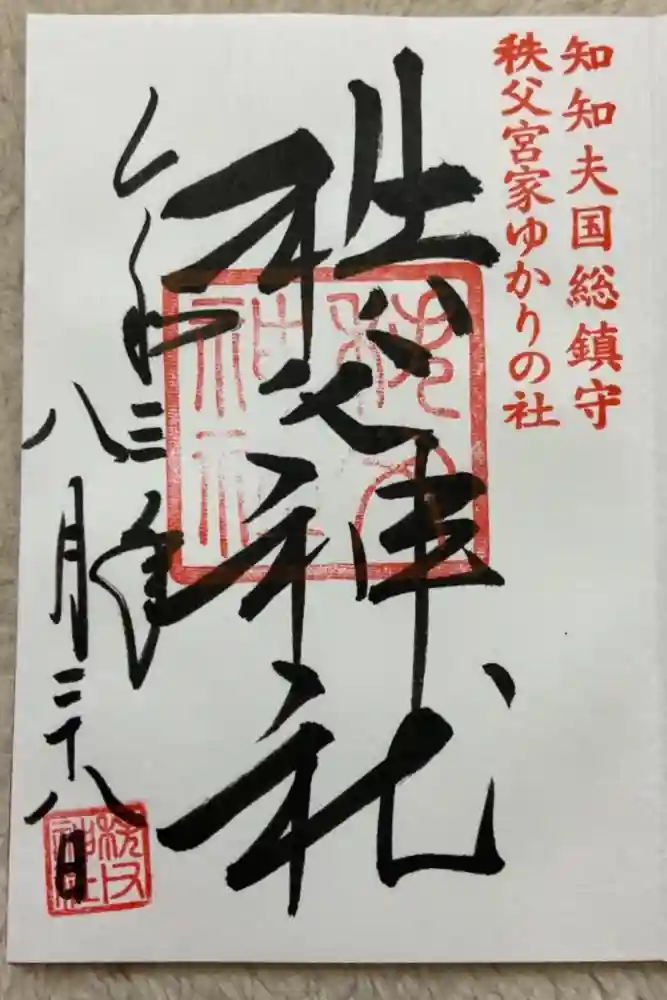 知知夫国総鎮守
秩父宮家ゆかりの社
秩父神社
令和三年
八月二十八日
秩父
神社